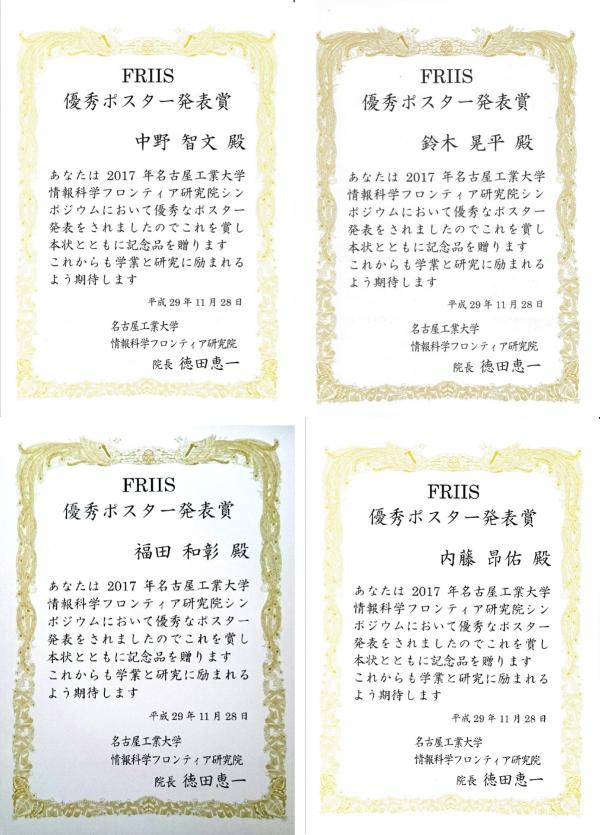 FRIIS
優秀ポスター発表賞
中野 智文 殿
あなたは 2017 年名古屋工業大学
情報科学フロンティア研究院シン
ポジウムにおいて優秀なポスター
発表をされましたのでこれを賞し
本状とともに記念品を贈ります
これからも学業と研究に励まれる
よう期待します
平成 29 年 11 月 28 日
名古屋工業大学
情報科学フロンティア研究院
院長 徳田恵一
FRIIS
優秀ポスター発表賞
鈴木 晃平 殿
あなたは 2017 年名古屋工業大学
情報科学フロンティア研究院シン
ポジウムにおいて優秀なポスター
発表をされましたのでこれを賞し
本状とともに記念品を贈ります
これからも学業と研究に励まれる
よう期待します
平成 29 年 11 月 28 日
名古屋工業大学
情報科学フロンティア研究院
院長 徳田恵一
FRIIS
優秀ポスター発表賞
福田 和彰 殿
あなたは 2017 年名古屋工業大学
情報科学フロンティア研究院シン
ポジウムにおいて優秀なポスター
発表をされましたのでこれを賞し
本状とともに記念品を贈ります
これからも学業と研究に励まれる
よう期待します
平成 29 年 11 月 28 日
名古屋工業大学
情報科学フロンティア研究院
院長 徳田恵一
FRIIS
優秀ポスター発表賞
内藤 昂佑 殿
あなたは 2017 年名古屋工業大学
情報科学フロンティア研究院シン
ポジウムにおいて優秀なポスター
発表をされましたのでこれを賞し
本状とともに記念品を贈ります
これからも学業と研究に励まれる
よう期待します
平成 29 年 11 月 28 日
名古屋工業大学
情報科学フロンティア研究院
院長 徳田恵一